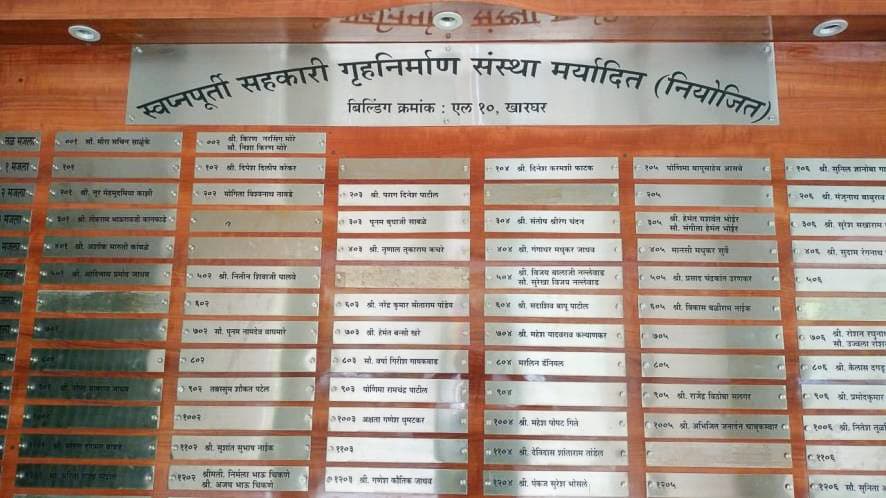 स्वप्नपूर्ती सहकारी गृहनिर्माण संस्था मर्यादित (नियोजित)
बिल्डिंग क्रमांक : एल १०, खारघर
तळ मजला ००१ सौ. मीरा सचिन साळुंके ००२ श्री. किरण नरसिंग मोरे
सौ. निशा किरण मोरे
१ मजला १०१ १०२ श्री. दिपेश दिलीप वरेकर १०४ श्री. दिनेश करमशी फाटक १०५ पोर्णिमा बापुसाहेब आसवे १०६ श्री. सुनिल ज्ञानोबा
२ मजला २०१ श्री. नुर मेहमुदमिया काझी २०२ योगिता विश्वनाथ तावडे २०३ श्री. पराग दिनेश पाटील २०५ २०६ श्री. मंजुनाथ बाबुराव
मजला ३०१ श्री. ३०३ पूनम बुधाजी साबळे ३०४ श्री. संतोष श्रीरंग चंदन ३०५ श्री. हेमंत यशवंत भोईर
सौ. संगीता हेमंत भोईर
३०६ श्री. सुरेश सखाराम
मजला ४०१ श्री. अशोक मारुती कांबळे ४०३ श्री. तृणाल तुकाराम कचरे ४०४ श्री. गंगाधर मधुकर जाधव ४०५ मानसी मधुकर सुर्वे ४०६ श्री. सुदाम
५०१ श्री. आदिनाथ प्रमोद जाधव ५०२ श्री. नितीन शिवाजी पालवे ५०४ श्री. विजय बालाजी नल्लेवाड
सौ. सुरेखा विजय नल्लेवाड
५०५ श्री. प्रसाद चंद्रकांत उरणकर ५०६
६०२ ६०३ श्री. नरेंद्र कुमार मोताराम पांडेय ६०४ श्री. सदाशिव बापू पाटील ६०५ श्री. विकास बळीराम नाईक
७०१ ७०२ सौ. पूनम नामदेव वाघमारे ७०३ श्री. हेमंत बन्सी खरे ७०४ श्री. महेश यादवराव कल्याणकर ७०५ ७०६ श्री. रोशन
सौ. उज्वला
८०२ ८०३ सौ. वर्षा गिरीश गायकवाड ८०४ मारलिन डॅनियल ८०५ ८०६ श्री. कैलास दगडू
९०२ तबस्सुम शौकत पटेल ९०३ पोर्णिमा रामचंद्र पाटील ९०४ ९०५ श्री. राजेंद्र विठोबा मलगर ९०६ श्री. प्रमोदकुमार
१००२ १००३ अक्षता गणेश धुमटकर १००४ श्री. महेश पोपट गिते १००५ श्री. अभिजित जनार्दन चाबुकस्वार १००६ श्री. नितेश
११०२ श्री. सुशांत सुभाष नाईक ११०३ ११०४ श्री. देविदास शांताराम तांडेल ११०६
१२०२ श्रीमती. निर्मला भाऊ चिकणे
श्री. अजय भाऊ चिकणे
१२०३ श्री. गणेश कौतिक जाधव १२०४ श्री. पंकज सुरेश भोसले १२०५ १२०६ सौ. सुनिता